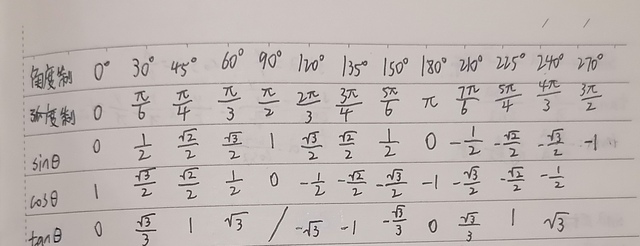 角度制 0° 30° 45° 60° 90° 120° 135° 150° 180° 210° 225° 240° 270°
弧度制 0 π/6 π/4 π/3 π/2 2π/3 3π/4 5π/6 π 7π/6 5π/4 4π/3 3π/2
sinθ 0 1/2 √2/2 √3/2 1 √3/2 √2/2 1/2 0 -1/2 -√2/2 -√3/2 -1
cosθ 1 √3/2 √2/2 1/2 0 -1/2 -√2/2 -√3/2 -1 -√3/2 -√2/2 -1/2
tanθ 0 √3/3 1 √3 / -√3 -1 -√3/3 0 √3/3 1 √3